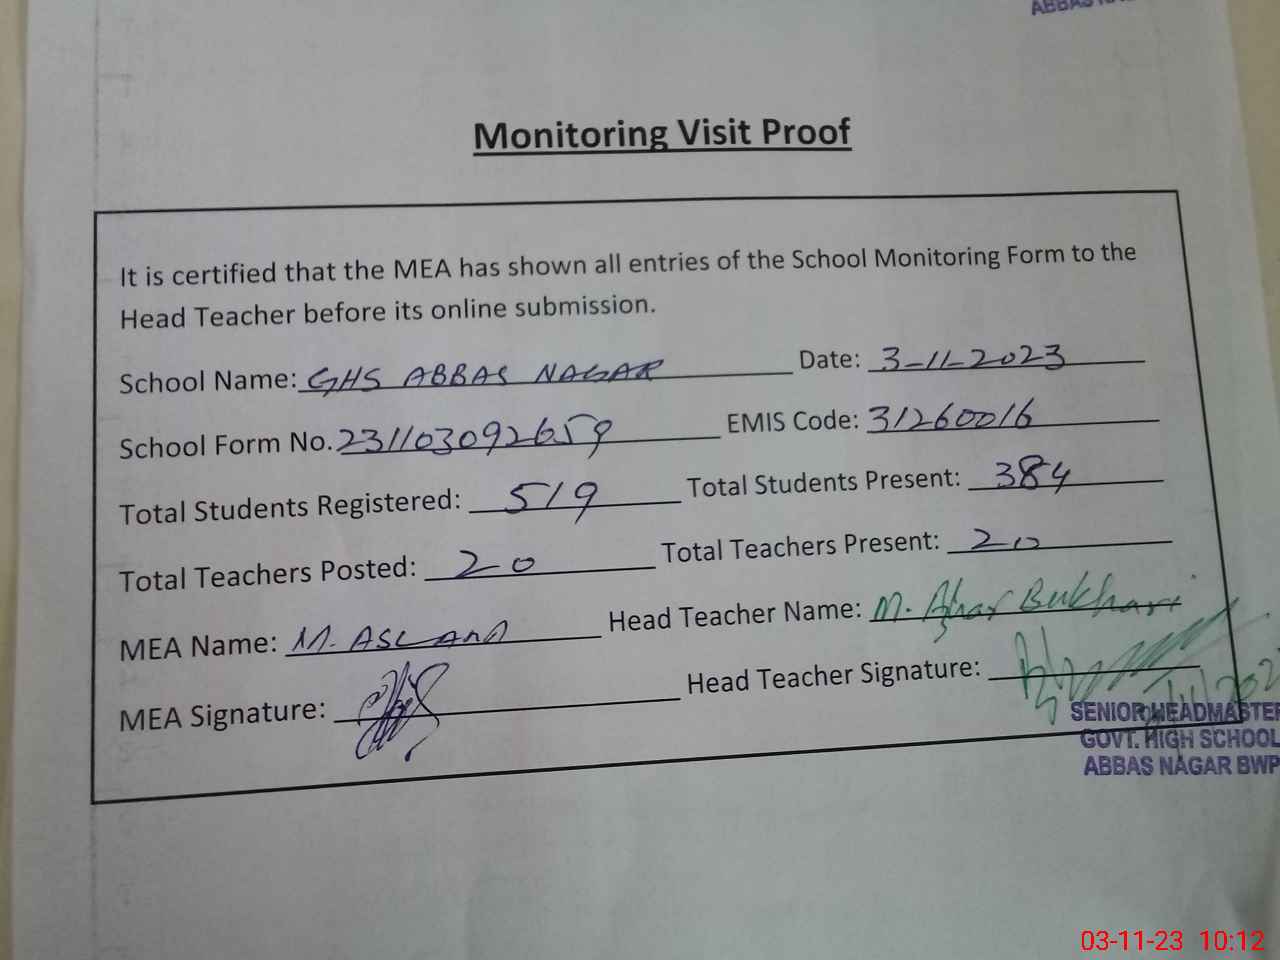 ABBAS NA
Monitoring Visit Proof
It is certified that the MEA has shown all entries of the School Monitoring Form to the
Head Teacher before its online submission.
School Name: GHS ABBAS NAGAR Date: 3-11-2023
School Form No. 231103092659 EMIS Code: 31260016
Total Students Registered: 519 Total Students Present: 384
Total Teachers Posted: 20 Total Teachers Present: 20
MEA Name: M. ASLAM Head Teacher Name: M. Bukhari
MEA Signature: Head Teacher Signature:
SENIOR HEADMASTER
GOVT. HIGH SCHOOL
ABBAS NAGAR BWP
03-11-23 10:12